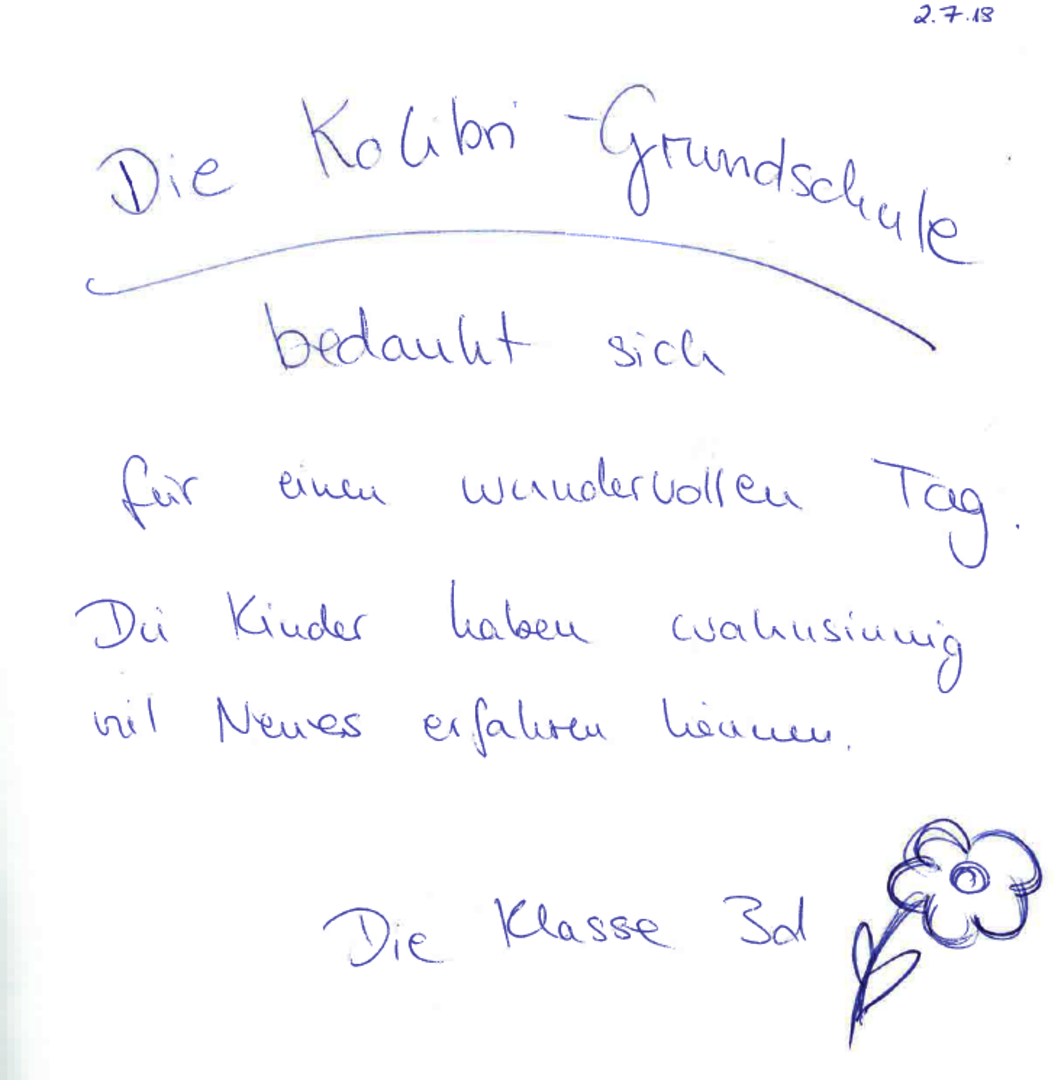 2.7.18
Die Kolibri-Grundschule
bedankt sich
für einen wundervollen Tag.
Die Kinder haben wahnsinnig
viel Neues erfahren können.
Die Klasse 3d